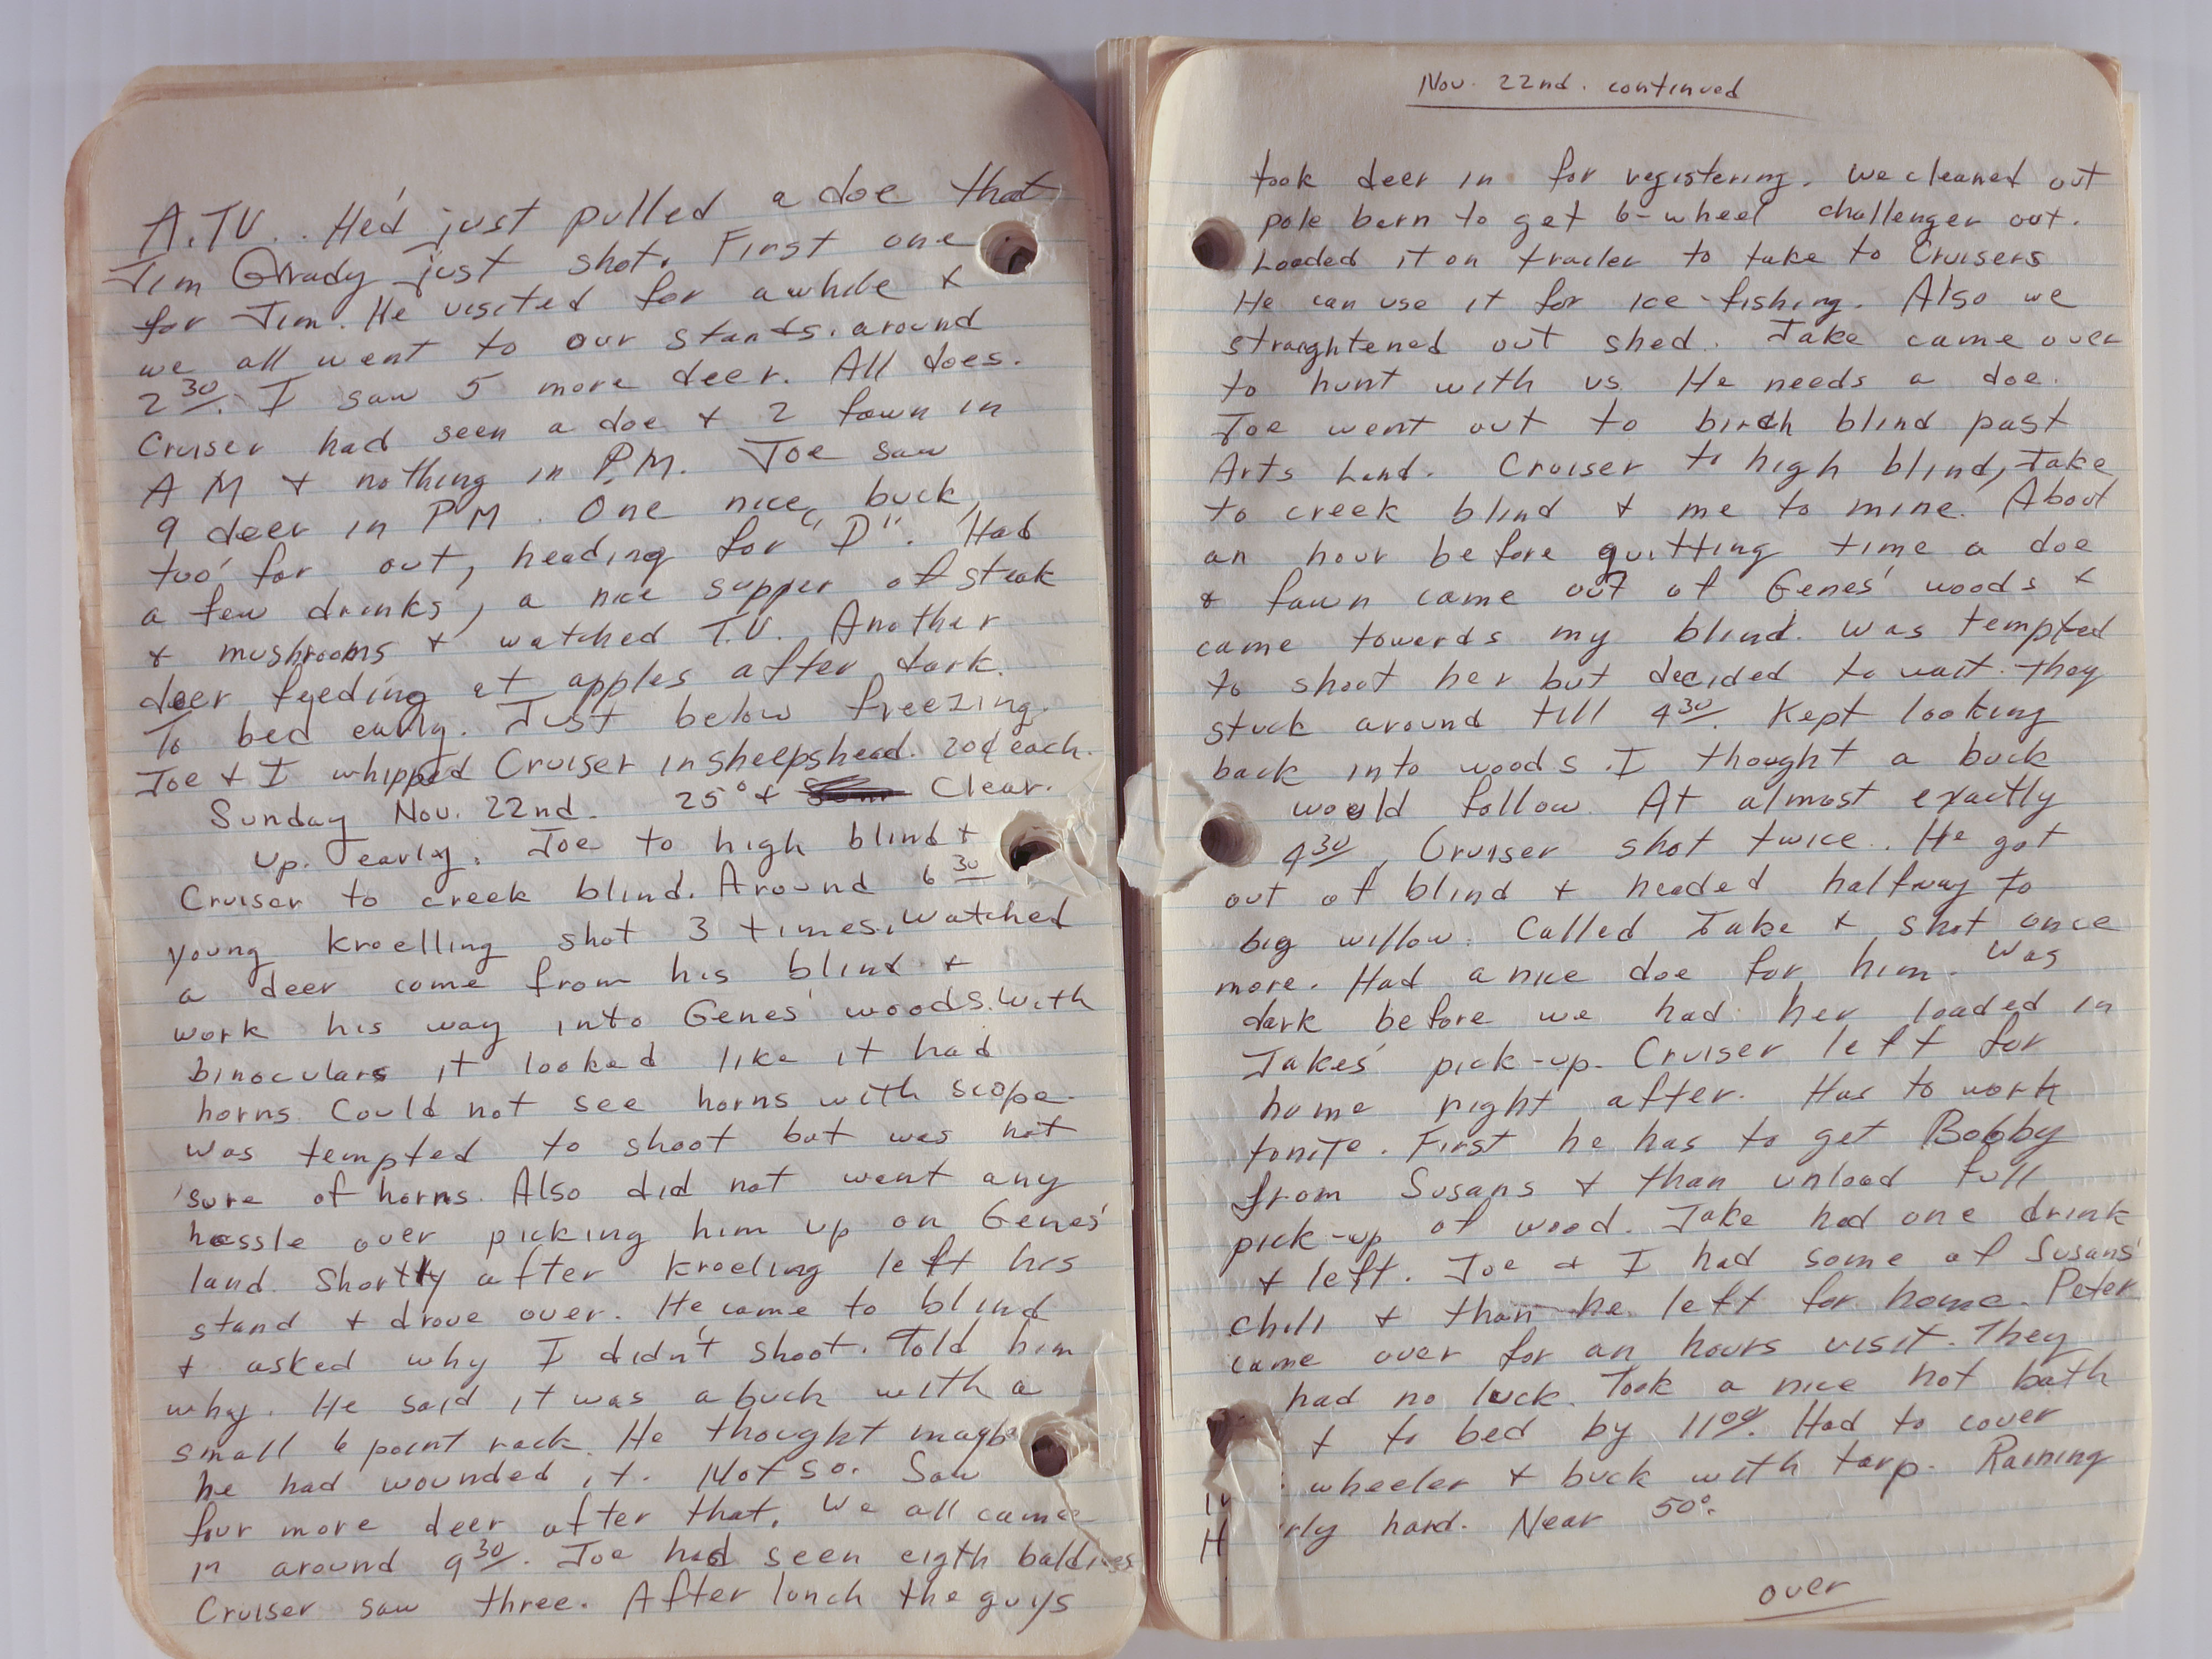 A.T.V.. He'd just pulled a doe that
Jim Grady just shot. First one
for Jim. He visited for awhile &
we all went to our stands. around
2 30. I saw 5 more deer. All does.
Cruiser had seen a doe & 2 fawn in
A M & nothing in P.M. Joe saw
9 deer in PM. One nice buck,
too far out, heading for "D". Had
a few drinks, a nice supper of steak
& mushrooms & watched T.V. Another
deer feeding at apples after dark.
To bed early. Just below freezing.
Joe & I whipped Cruiser in sheepshead. 20¢ each.
Sunday Nov. 22nd. 25° & Clear.
Up early. Joe to high blind &
Cruiser to creek blind. Around 6 30
young kroelling shot 3 times. Watched
a deer come from his blind &
work his way into Genes' woods. With
binoculars it looked like it had
horns. Could not see horns with scope.
Was tempted to shoot but was not
sure of horns. Also did not want any
hassle over picking him up on Genes'
land. Shortly after kroeling left his
stand & drove over. He came to blind
& asked why I didn't shoot. Told him
why. He said it was a buck with a
small 6 point rack. He thought maybe
he had wounded it. Not so. Saw
four more deer after that. We all came
in around 9 30. Joe had seen eigth baldies
Cruiser saw three. After lunch the guys
Nov. 22nd. continued
took deer in for registering. We cleaned out
pole barn to get 6-wheel challenger out.
Loaded it on trailer to take to Cruisers
He can use it for ice-fishing. Also we
straightened out shed. Jake came over
to hunt with us. He needs a doe.
Joe went out to birch blind past
Arts land. Cruiser to high blind, Jake
to creek blind & me to mine. About
an hour before quitting time a doe
& fawn came out of Genes' woods &
came towards my blind. Was tempted
to shoot her but decided to wait. they
stuck around till 4 30. Kept looking
back into woods. I thought a buck
would follow. At almost exactly
4 30, Cruiser shot twice. He got
out of blind & headed halfway to
big willow. Called Jake & shot once
more. Had a nice doe for him. Was
dark before we had her loaded in
Jakes' pick-up. Cruiser left for
home right after. Has to work
tonite. First he has to get Bobby
from Susans & than unload full
pick-up of wood. Jake had one drink
& left. Joe & I had some of Susans'
chili & than he left for home. Peter
came over for an hours visit. They
had no luck. Took a nice hot bath
& to bed by 11 00. Had to cover
wheeler & buck with tarp. Raining
hard. Near 50°.
over